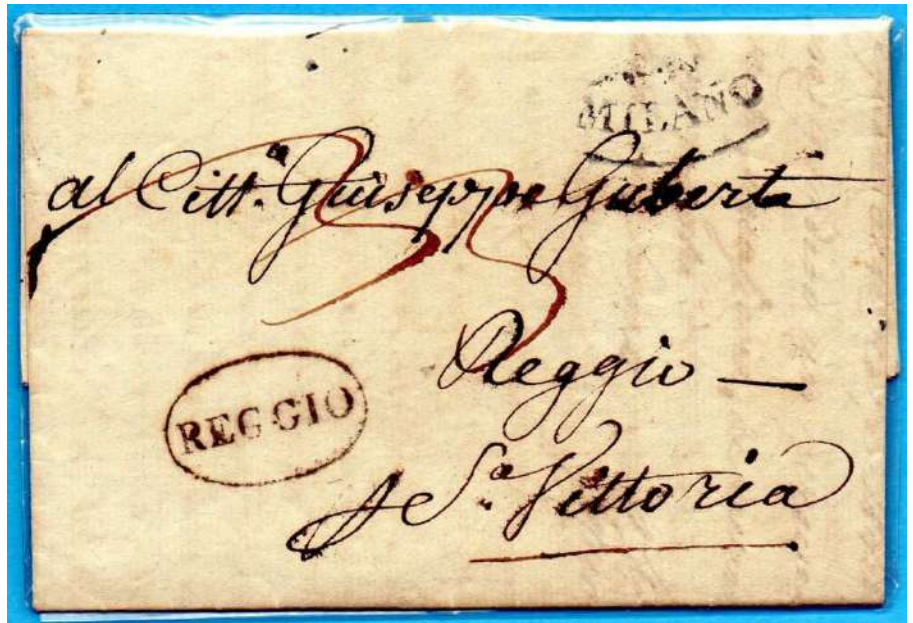 MILANO
al Citt.º Giuseppe Guberti
33
Reggio —
REGGIO
S.ª Vittoria